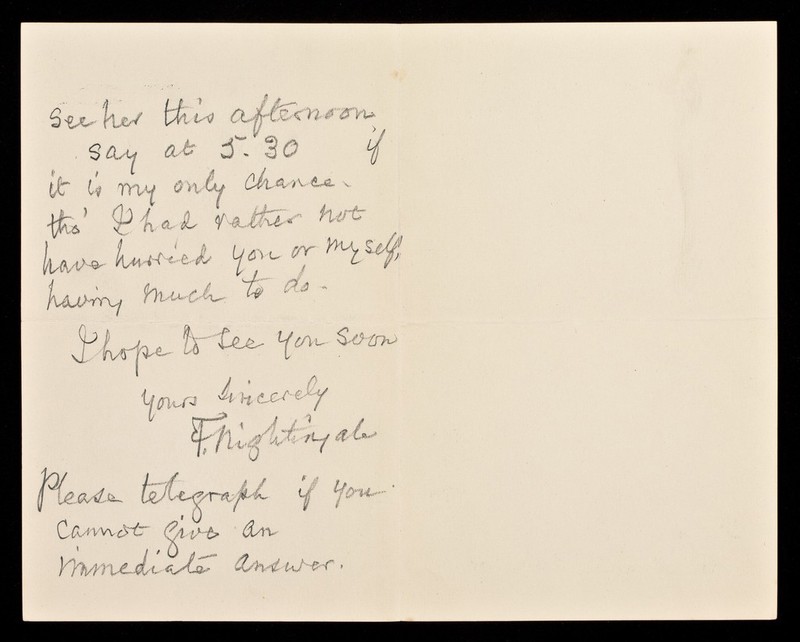 see her this afternoon
say at 5.30 if
it is my only chance.
tho' I had rather not
have hurried you or myself,
having much to do.
I hope to see you soon
yours sincerely
F. Nightingale
Please telegraph if you
cannot give an
immediate answer.